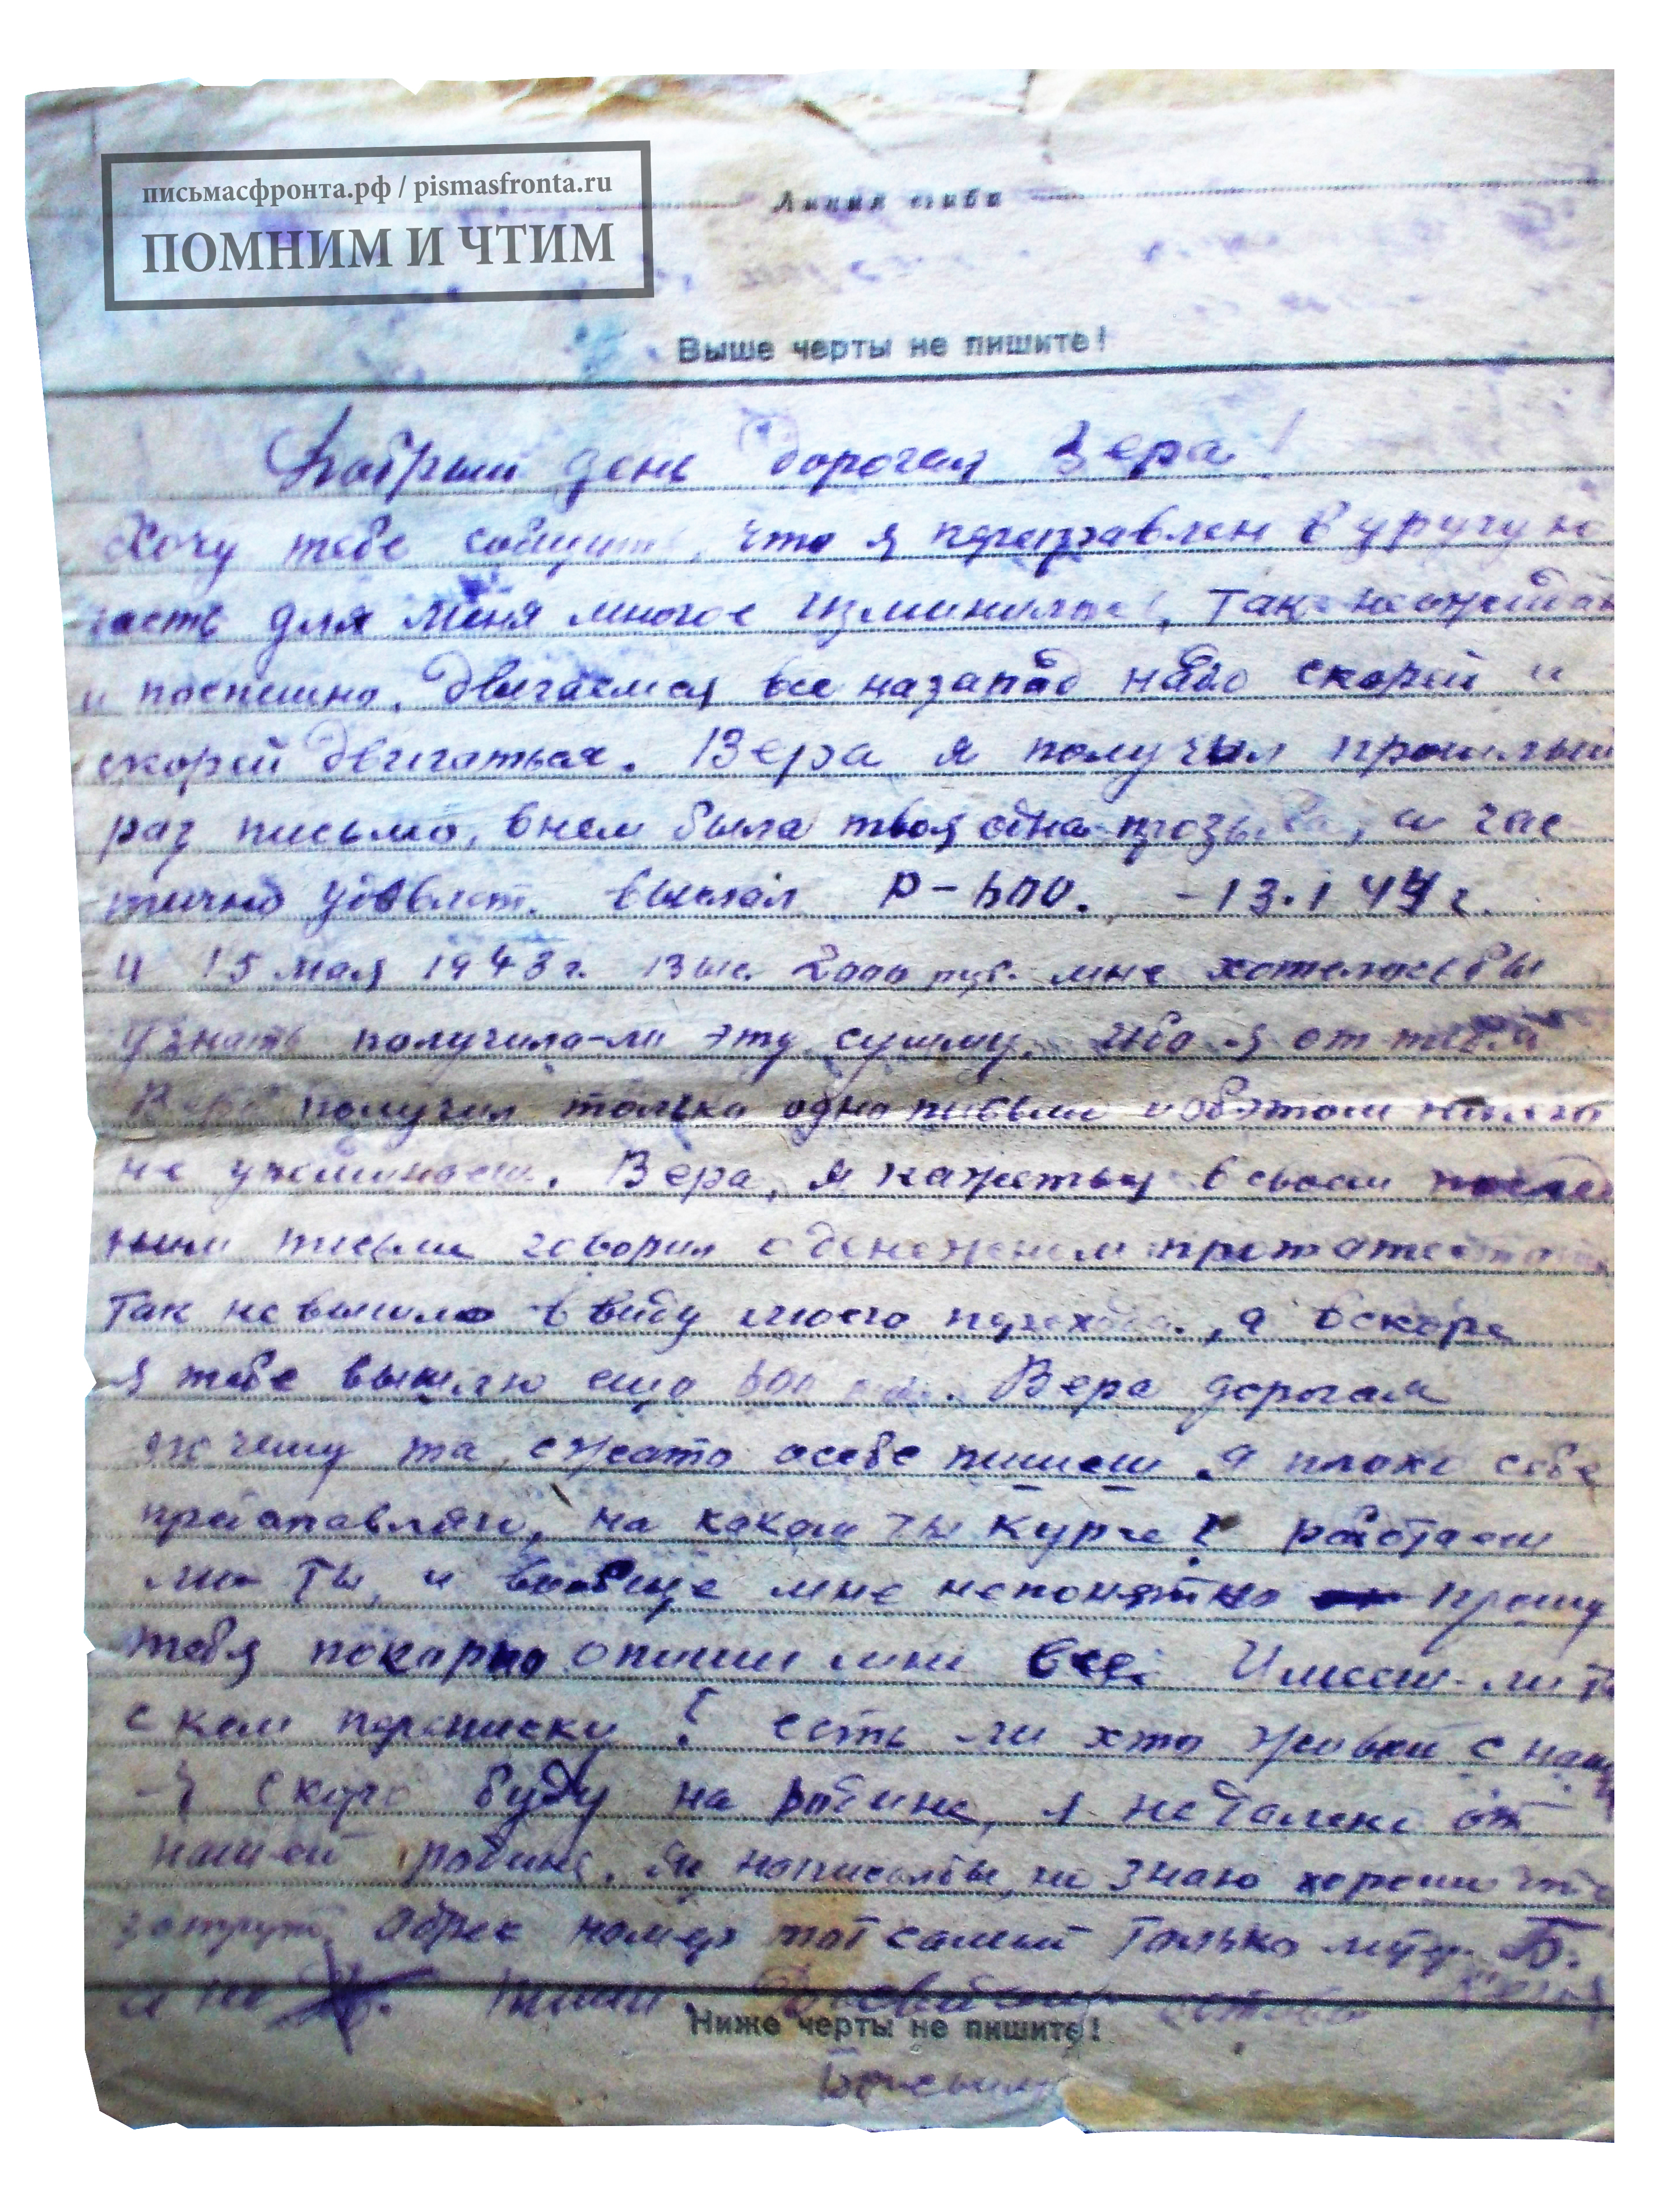 письмасфронта.рф / pismasfronta.ru
ПОМНИМ И ЧТИМ
Линия сгиба
Выше черты не пишите!
Добрый день дорогая Вера!
Хочу тебе что я переправлен в
часть для меня многое Так
и поспешно. Двигаемся все на запад надо скорей и
скорей двигаться. Вера я получил прошлый
раз письмо, в нем была твоя одна и час
тично выслал Р-600. -13.1 44 г.
и 15 мая 1943 г. выс. 2000 руб. мне хотелось бы
узнать получила-ли эту сумму. Ибо я от тебя
Вера получил только одно письмо и об этом
не Вера, я кажеться в своем послед
ним письме говорил о денежном
Так не вышло ввиду моего перехода, а вскоре
я тебе вышлю ещо 600 Вера дорогая
почему ты сжато о себе пишеш я плохо себе
на каком ты курсе? работаеш
ли ты, и вообще мне непонятно прошу
тебя покорно опиши мне все Имееш-ли ты
с кем переписку? есть ли хто живой с наш
Я скоро буду на родине, я не далеко от
нашей родине. Я написал бы, но знаю хорошо что
Адрес номер тот самый только литер Б.
а не Пиши.
Ниже черты не пишите!